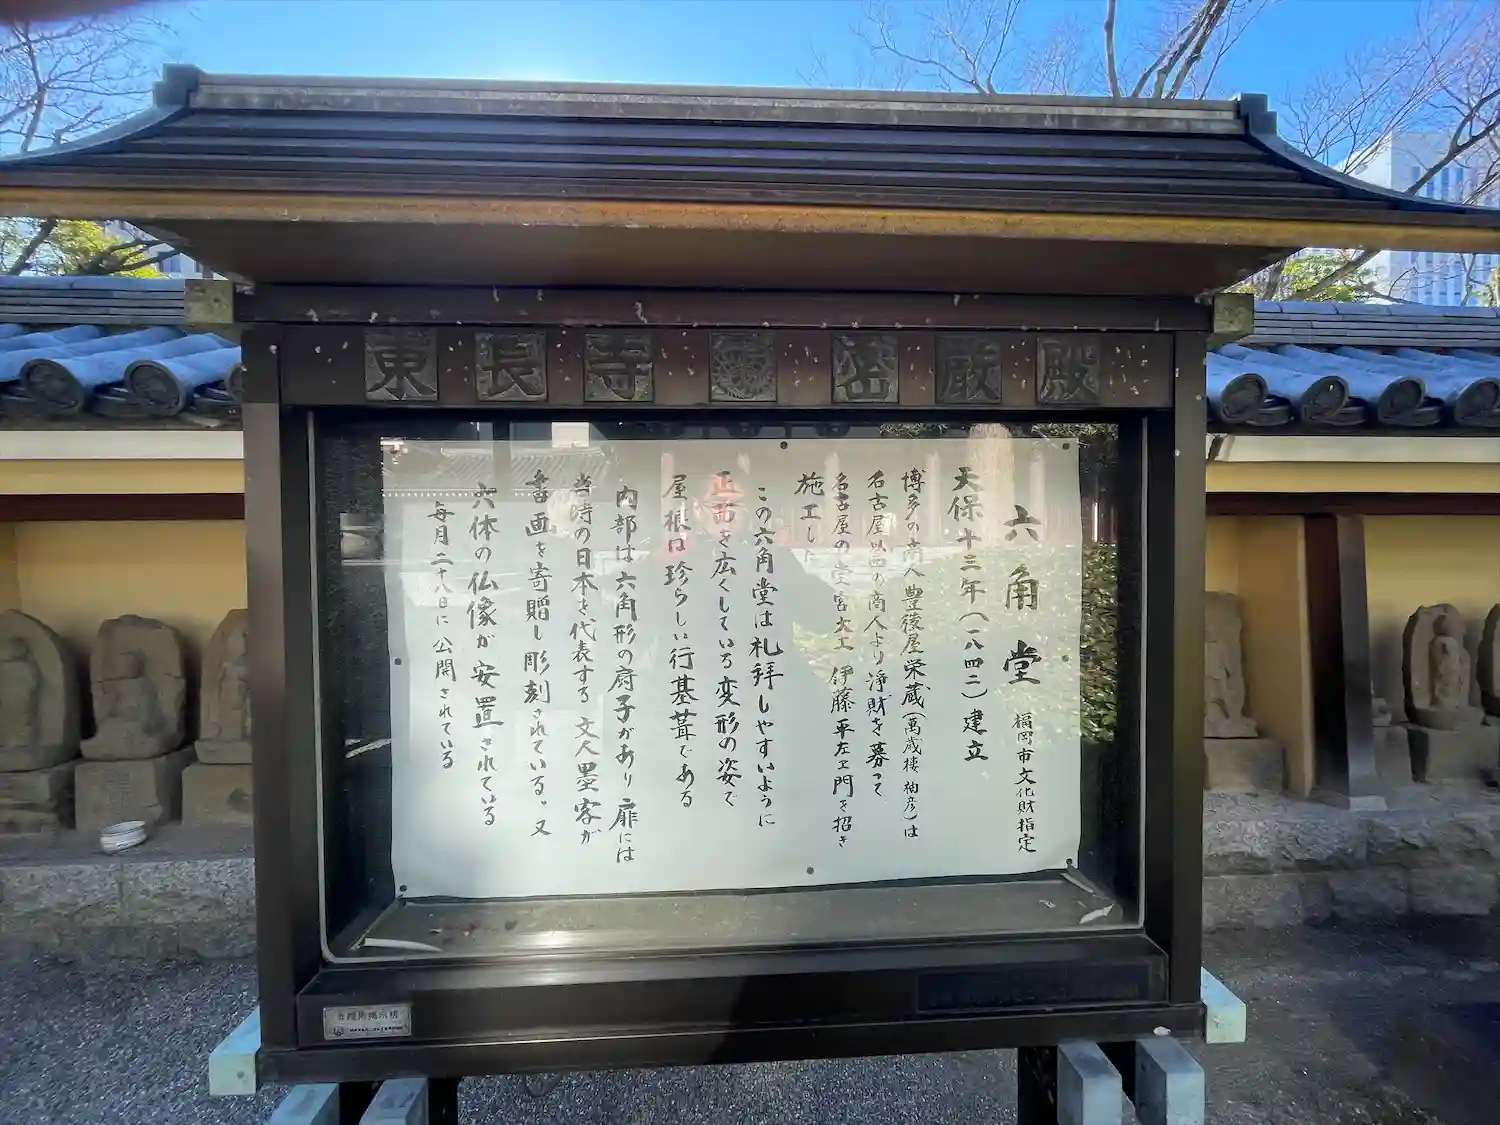 東長寺 密厳殿
六角堂 福岡市文化財指定
天保十三年(一八四二)建立
博多の商人豊後屋栄蔵(萬歳楼柚彦)は
名古屋以西の商人より浄財を募って
名古屋の堂宮大工 伊藤平左ヱ門を招き
施工した
この六角堂は礼拝しやすいように
正面を広くしている変形の姿で
屋根は珍らしい行基葺である
内部は六角形の厨子があり扉には
当時の日本を代表する文人墨客が
書画を寄贈し彫刻されている。又
六体の仏像が安置されている
毎月二十八日に公開されている